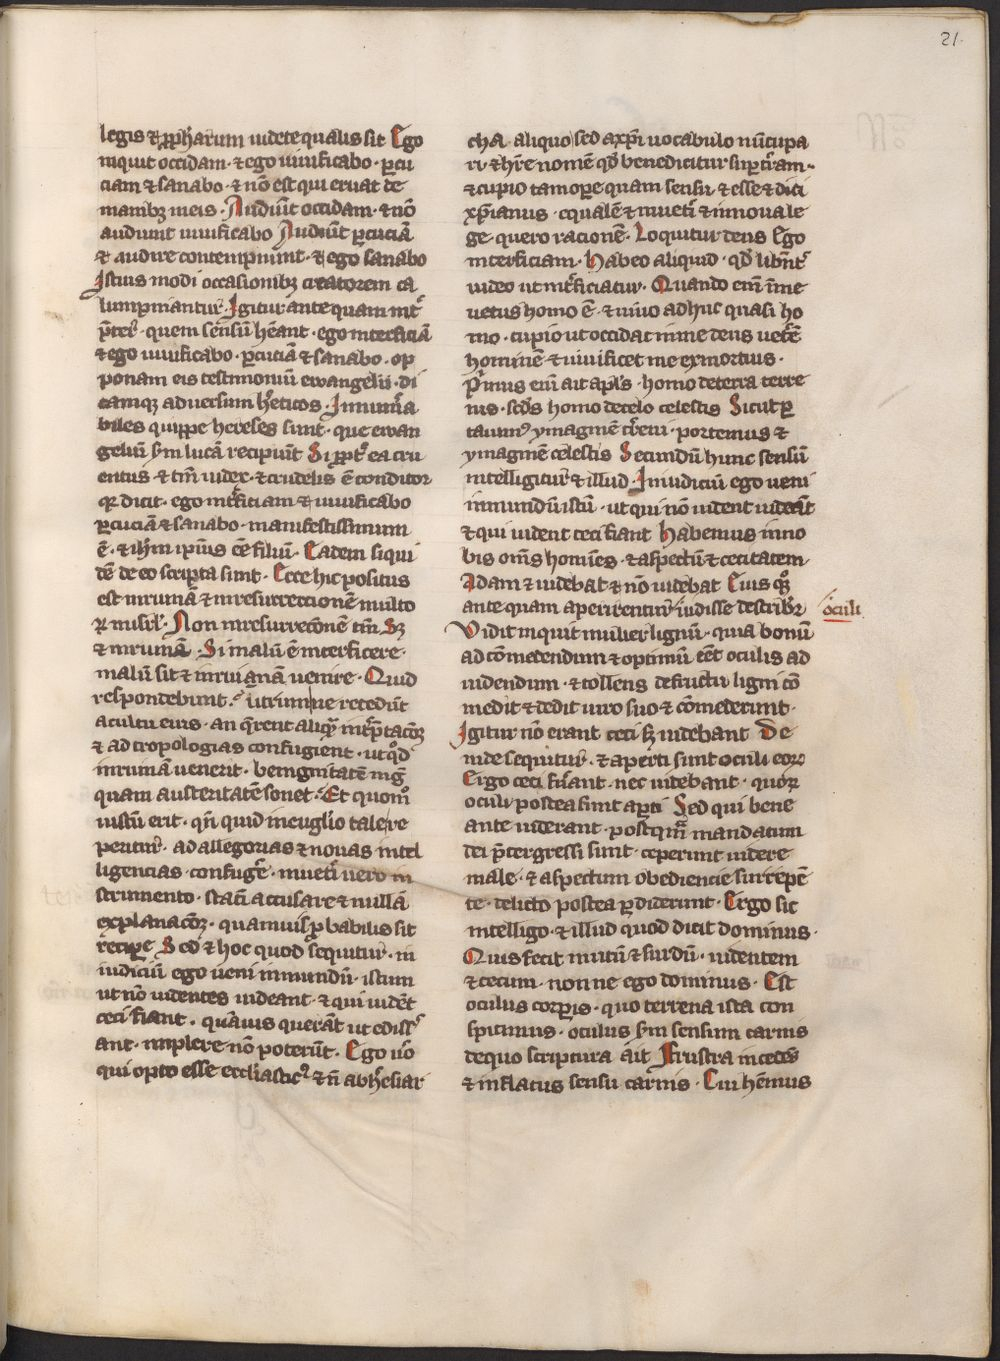 21.
legis & ꝓph̄arum uidete qualis sit Ego
inquit occidam · & ego uiuificabo · ꝑcu
ciam & sanabo · & nō est qui eruat de
manibꝫ meis · Audiūt occidam · & nō
audiunt uiuificabo Audiūt ꝑcuciā
& audire contempnunt · & ego sanabo
Istius modi occasionibꝫ creatorem ca
lumpniantur̄ · Igitur ante quam int̄
p̄ter̄ · quem sensū hēant · ego interficiā
& ego uiuificabo · ꝑcuciā & sanabo · op
ponam eis testimoniū ewangelii · di
camqꝫ aduersum hēticos · Innum̄a
biles quippe hereses sunt · que ewan
geliū sm̄ lucā recipiūt Si ꝓpt̄ ea cru
entus & tm̄ iudex · & crudelis ē conditor
qꝛ dicit · ego int̄ficiam & uiuificabo
ꝑcuciā & sanabo · manifestissimum
ē · & ih̄m ip̄ius eē filiū · Eadem siqui
dē de eo scripta sunt · Ecce hic positus
est in ruinā & in resurreccionē multo
ꝝ in isr̄l · Non in resurrecōnē tm̄ Sꝫ
& in ruinā · Si malū ē interficere ·
malū sit & in ruinā uenire · Quid
respondebunt · utrumne recedūt
a cultu eius · an q̄rent aliq̄ int̄ptacōꝫ
& ad tropologias confugient · ut qͦd
in ruinā uenerit · benignitatē mḡ
quam austeritatē sonet · Et quomͦ
iustū erit · qn̄ quid in euglio tale re
peritur̄ · ad allegorias & nouas intel
ligencias · confuḡe · in uet̄i uero in
strumento · statī accusare & nullā
explanacōꝫ · quamuis ꝓbabilis sit
recipe Sed & hoc quod sequitur · in
iudiciū ego ueni in mundū · istum
ut nō uidentes uideant · & qui uidēt
ceci fiant · quāuis querāt ut ediss̄
ant · implere nō poterūt · Ego uͦo
qui opto esse eccl̄iasticꝰ & n̄ ab hēsiar
cha aliquo sed a xp̄i uocabulo nūcupa
ri & hr̄e nomē qd̄ benedicitur suꝑ tr̄am ·
& cupio tam oꝑe quam sensu & esse & dici
xp̄ianus · equalē & in uet̄i & in noua le
ge · quero racionē · Loquitur deus Ego
interficiam · Habeo aliquid · qd̄ libn̄t̄
uideo ut int̄ficiatur · Quando em̄ ī me
uetus homo ē · & uiuo adhuc quasi ho
mo · cupio ut occidat in me deus uet̄ē
hominē & uiuificet me ex mortuis ·
P̄mus em̄ ait apl̄s · homo de terra terre
nis · scd̄s homo de celo celestis Sicut ꝑ
tauimꝰ ymaginē tr̄eni · portemus &
ymaginē celestis Secundū hunc sensū
intelligitur̄ & illud · In iudiciū ego ueni
in mundū istū · ut qui nō uident uideāt
& qui uident ceci fiant Habemus in no
bis om̄s homīes · & aspectū & cecitatem
Adam & uidebat & nō uidebat Eius qͦꝫ
ante quam aperirentur̄ uidisse describr̄
Vidit inquit mulier lignū · quia bonū
ad cōmedendum & optimū eēt oculis ad
uidendum · & tollens de fructu ligni cō
medit & dedit uiro suo & cōmederunt ·
Igitur nō erant ceci sꝫ uidebant De
inde sequitur · & aperti sunt oculi eoꝝ
Ergo ceci fūant · nec uidebant · quoꝝ
oculi postea sunt aꝑti Sed qui bene
ante uiderant · postqm̄ mandatum
dei p̄tergressi sunt · ceperunt uidere
male · & aspectum obediencie surrepē
te · delicto postea ꝑdiderunt · Ergo sic
intelligo · & illud quod dicit dominus ·
Quis fecit mutū & surdū · uidentem
& cecum · nonne ego dominus · Est
oculus corꝑis · quo terrena ista con
spicimus · oculus sm̄ sensum carnis
de quo scriptura ait Frustra incedēs
& inflatus sensu carnis · Cui hēmus
oculi